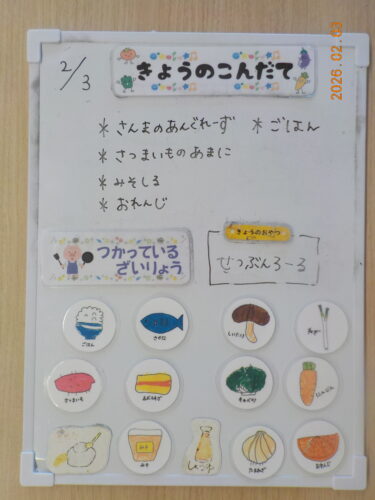 2026.02.03
きょうのこんだて
2/3
* さんまのあんぐれーず * ごはん
* さつまいものあまに
* みそしる
* おれんじ
つかっている
ざいりょう
きょうのおやつ
せつぶんろーる
ごはん
さかな
しいたけ
ねぎ
さつまいも
あぶらあげ
きゃべつ
にんじん
みそ
しょうゆ
たまねぎ
おれんじ